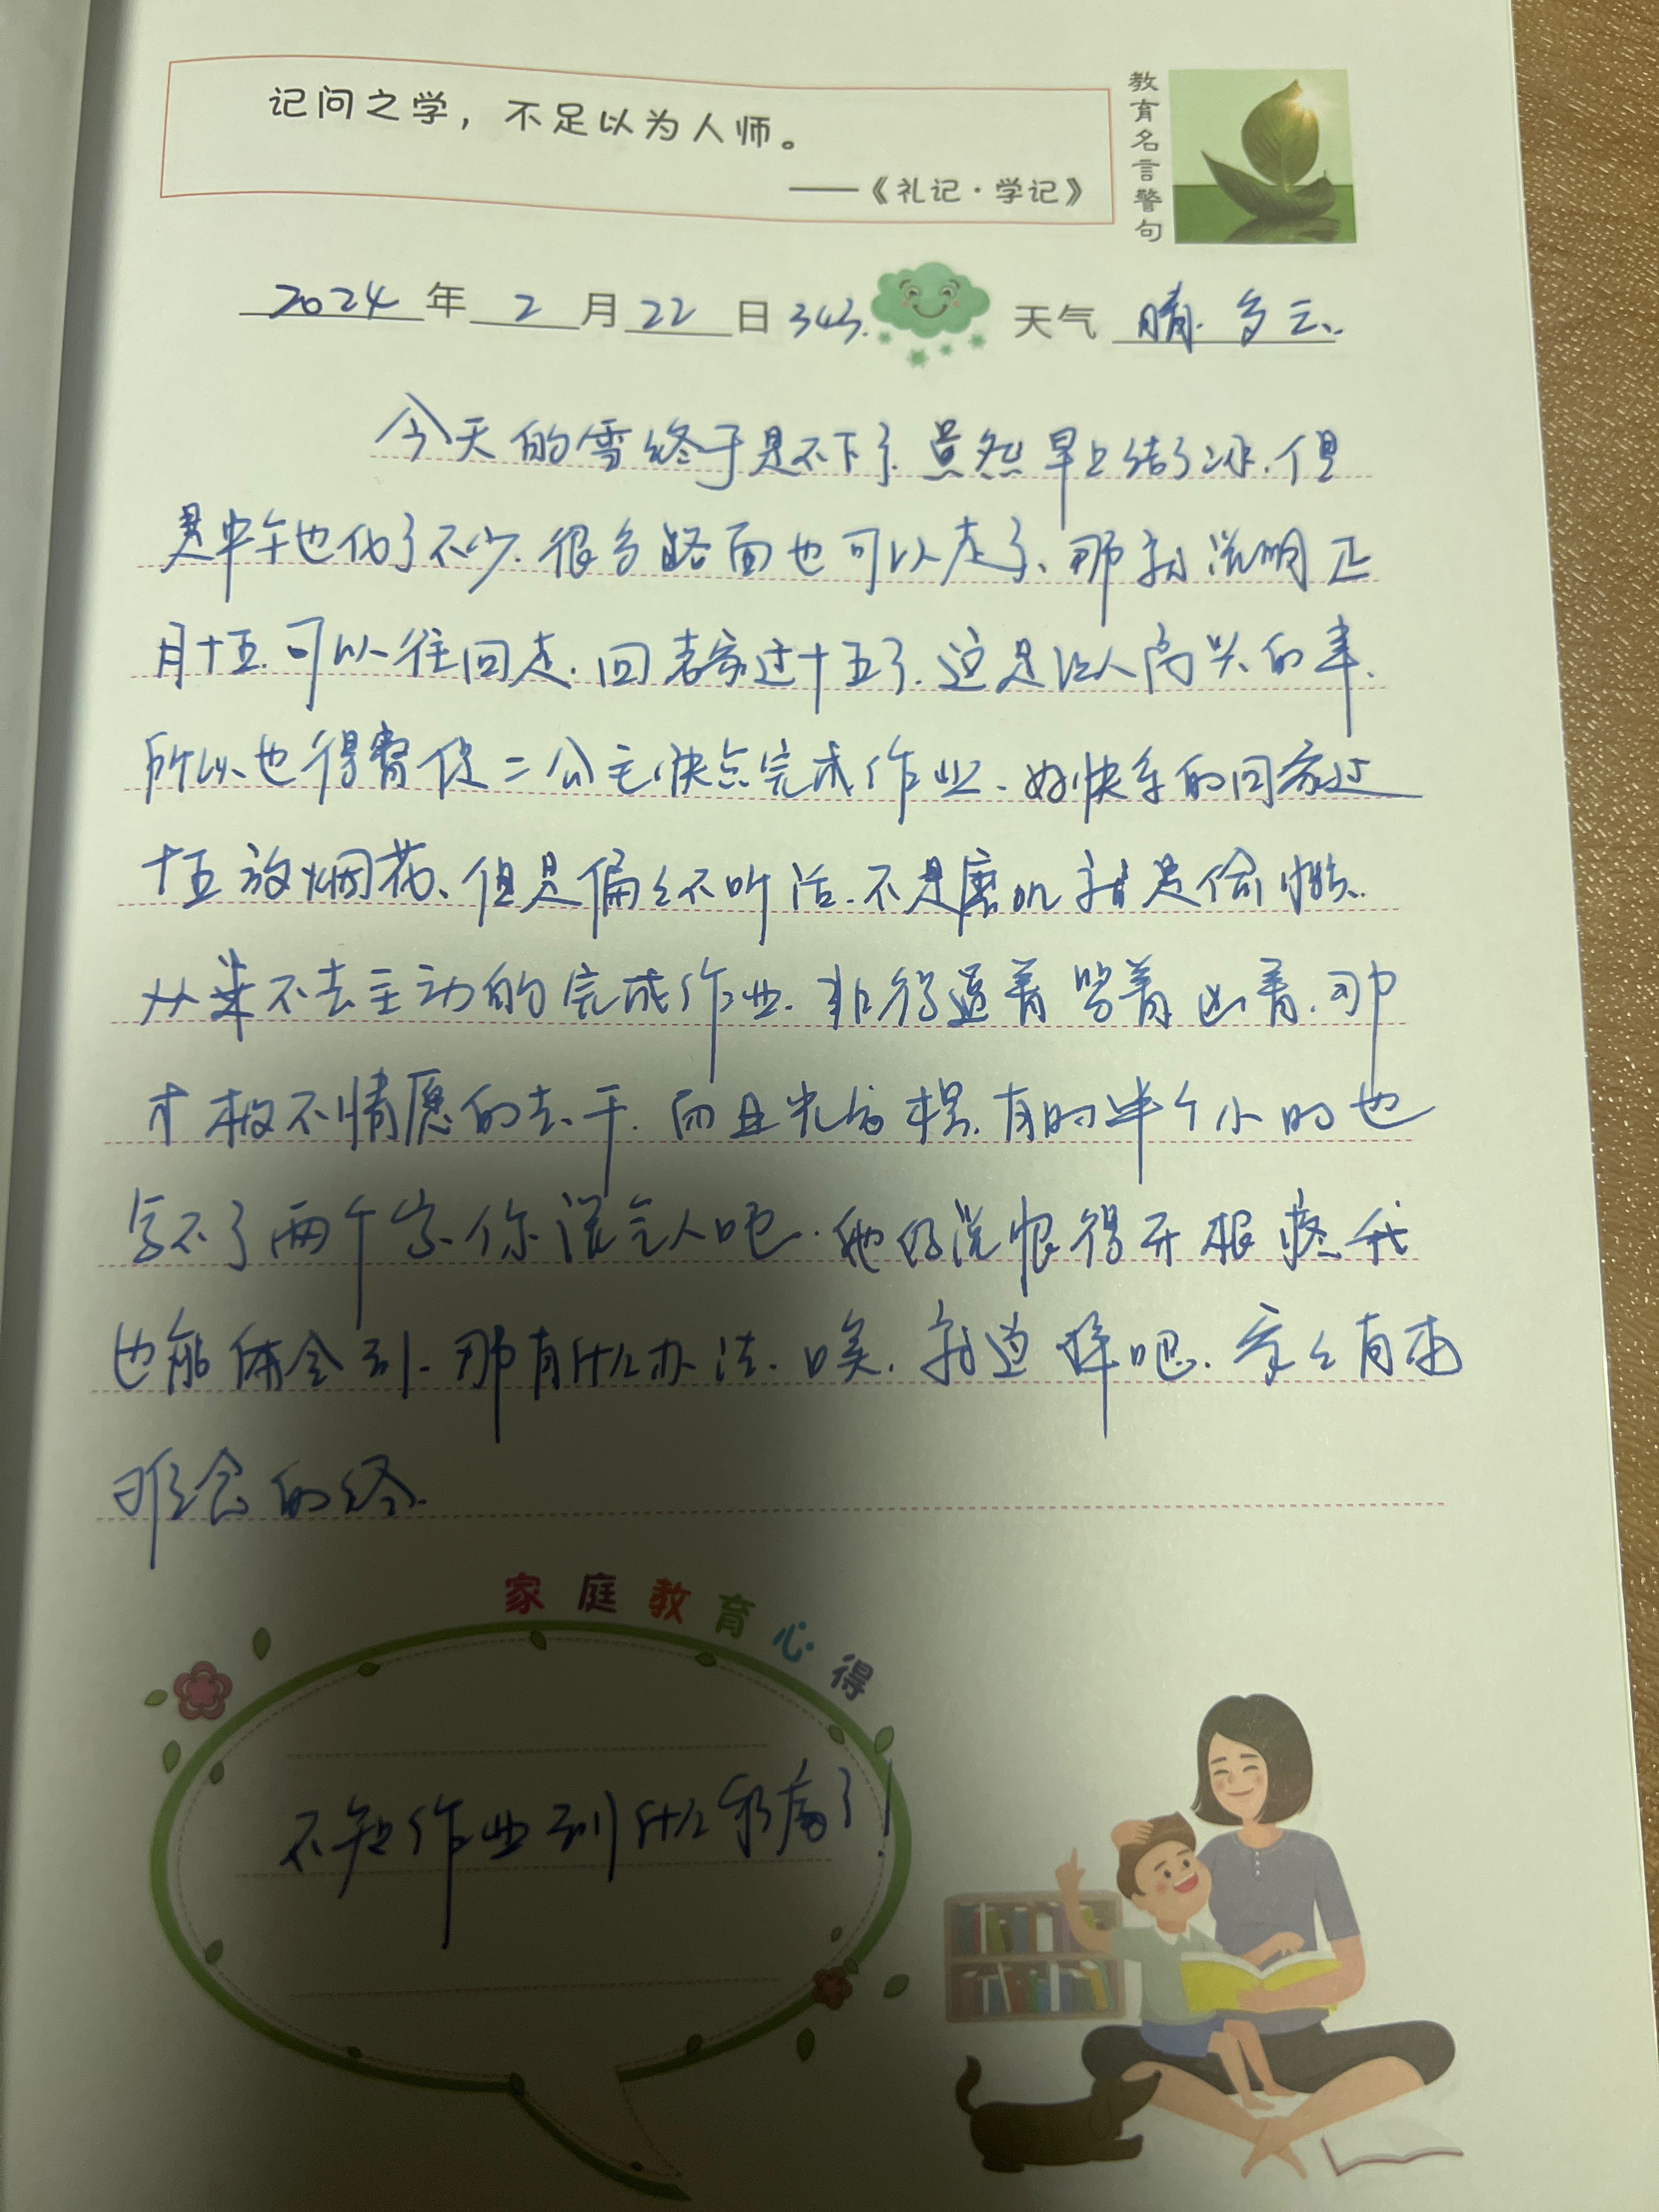 记问之学，不足以为人师。
——《礼记·学记》
教育名言警句
2024年2月22日 343. 天气 晴.多云.
今天的雪终于是不下了.虽然早上结了冰.但
是中午也化了不少.很多路面也可以走了、那就说明正
月十五.可以往回走.回老家过十五了.这是让人高兴的事.
所以也得督促二公主快点完成作业、好快乐的回家过
十五放烟花、但是偏偏不听话.不是磨叽就是偷懒.
从来不去主动的完成作业.非得逼着 骂着 凶着.那
才极不情愿的去干.而且光发呆.有时半个小时也
写不了两个字.你说气人吧.她妈说恨得牙根疼我
也能体会到.那有什么办法.唉.就这样吧.家家有本
难念的经.
家庭教育心得
不知作业到什么